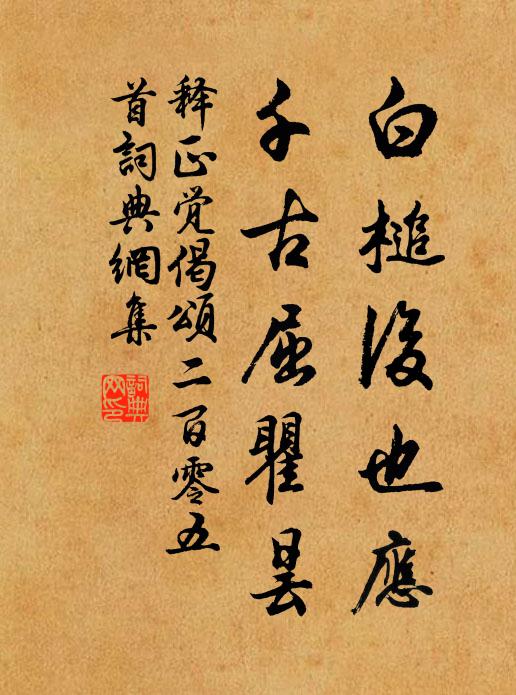 白槌後也應
千古屈瞿曇
释正覺偈頌二百零五
首詞典網集
詞典网印